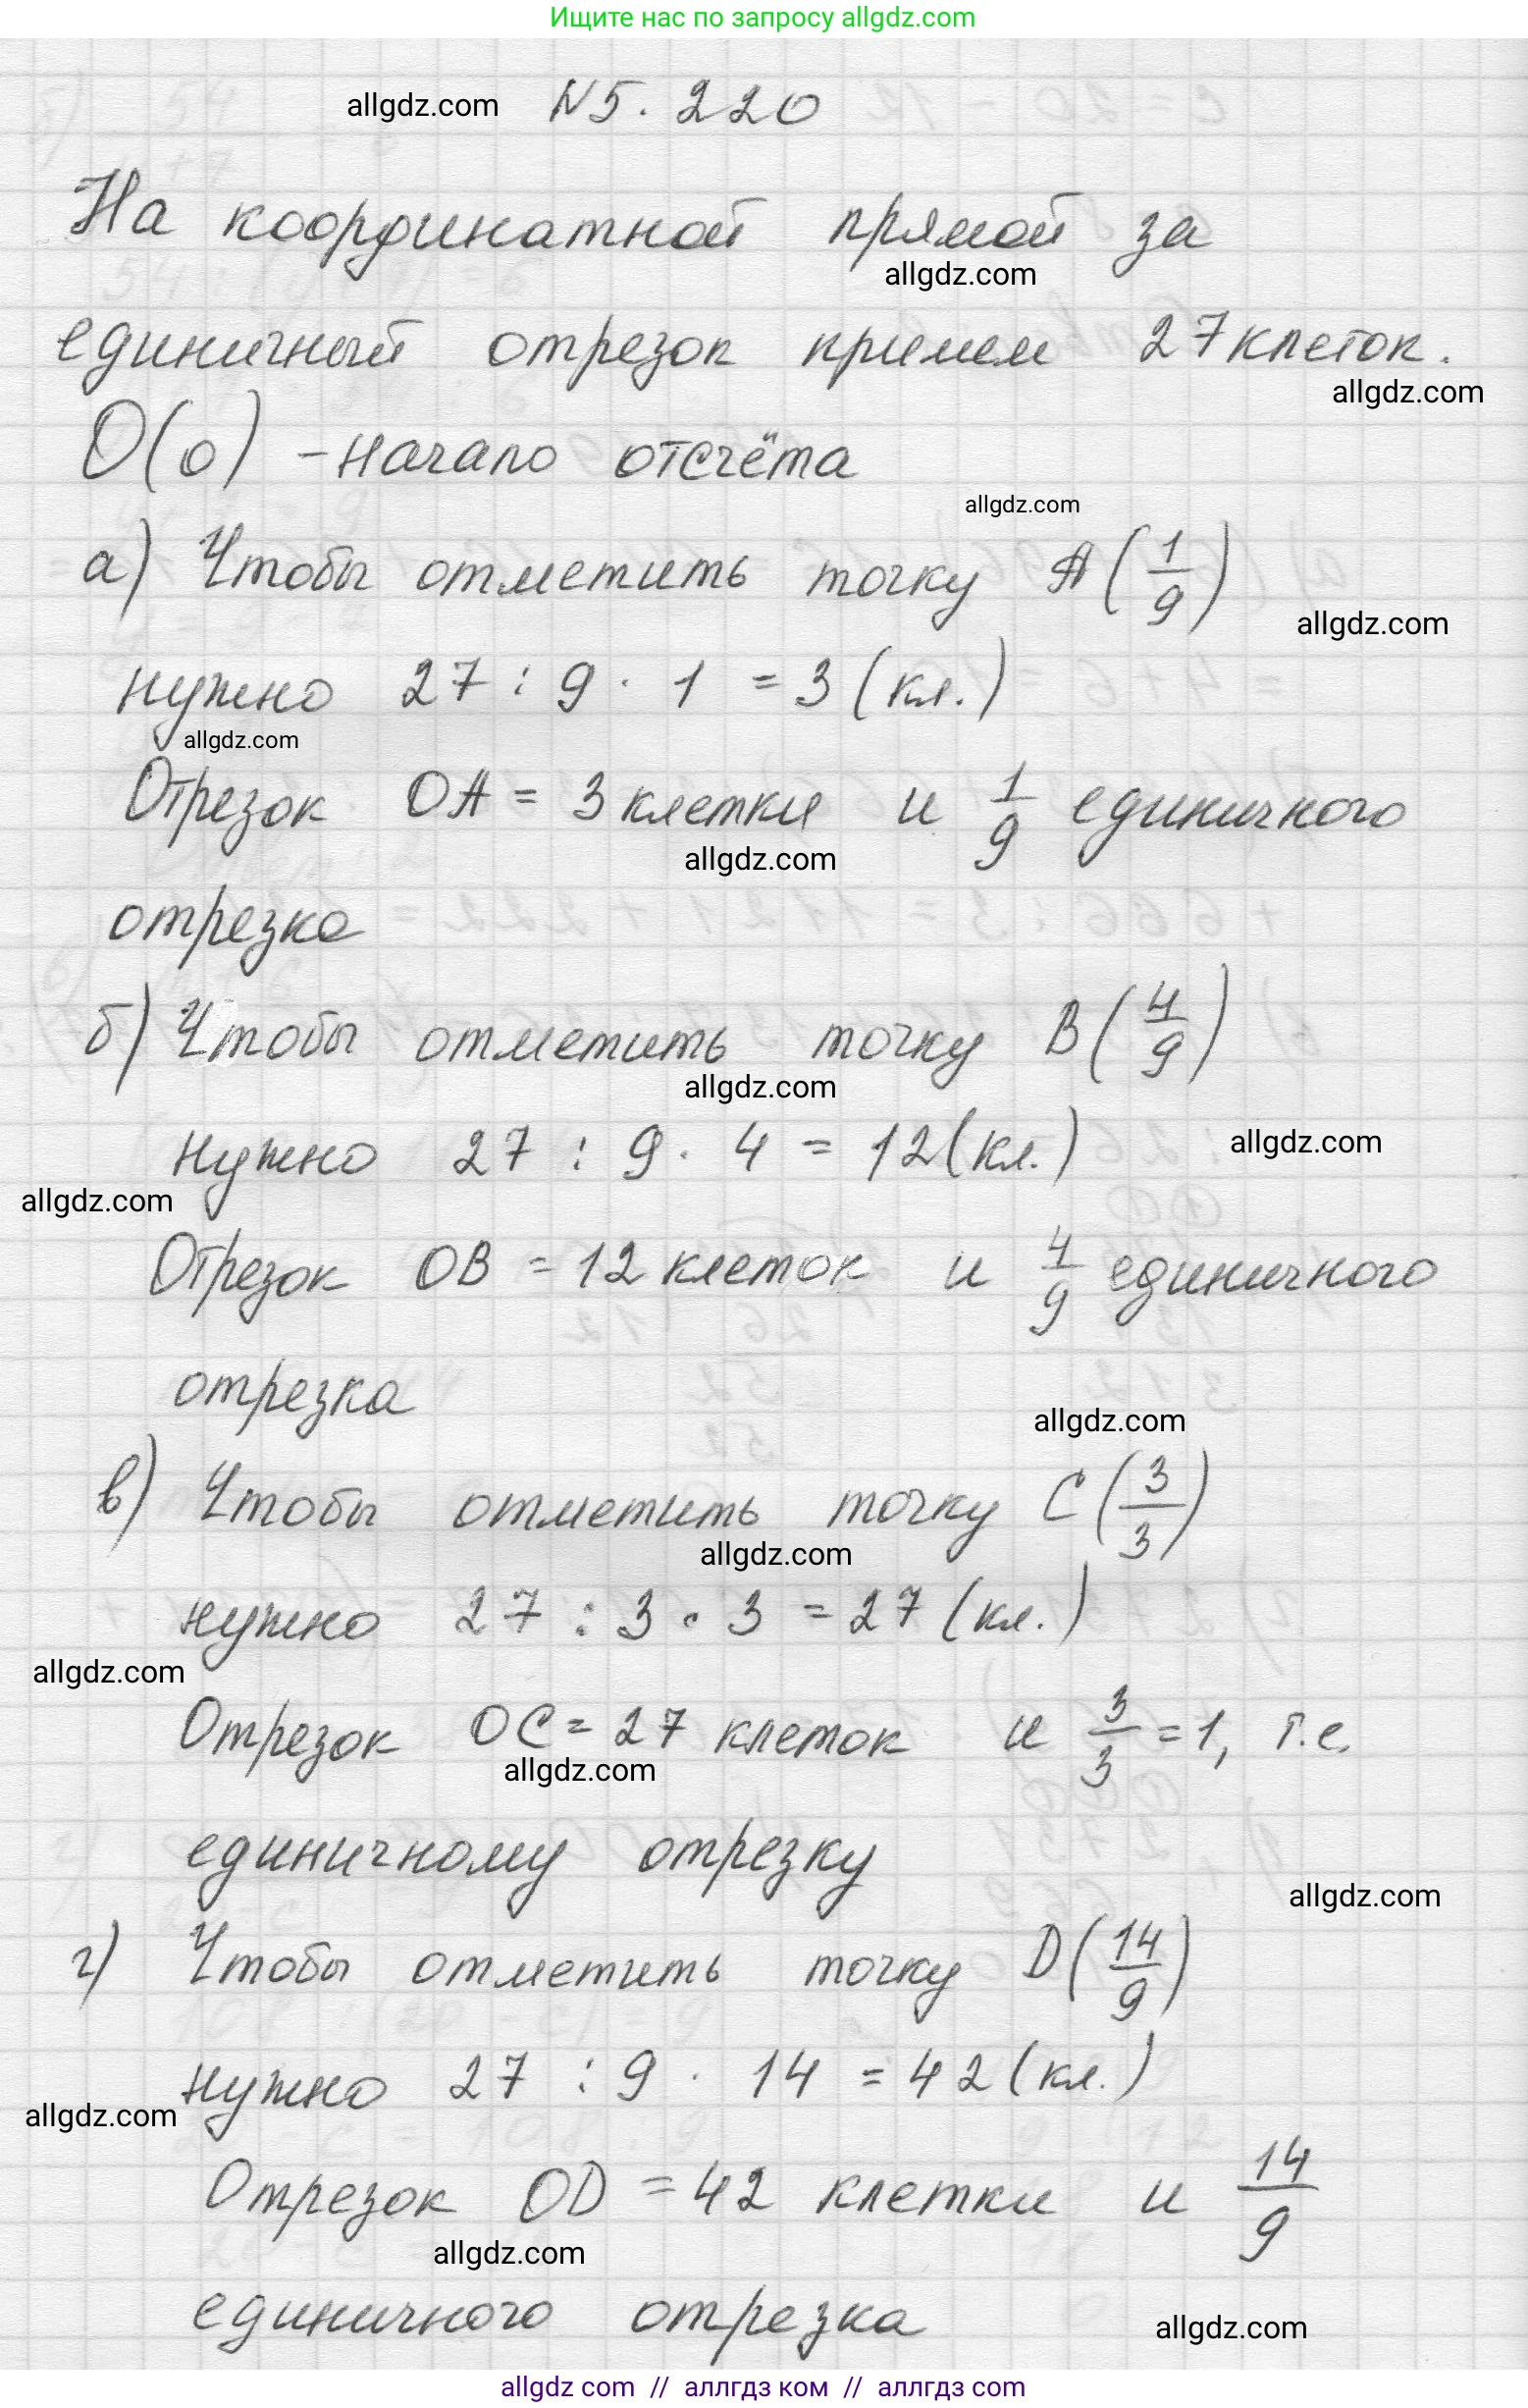 Ищите нас по запросу allgdz.com
allgdz.com N5.220
На координатной прямой за
allgdz.com
единичный отрезок примем 27 клеток.
allgdz.com
O(0) - начало отсчёта
allgdz.com
а) Чтобы отметить точку A(1/9)
allgdz.com
нужно 27 : 9 · 1 = 3 (кл.)
allgdz.com
Отрезок OA = 3 клетки и 1/9 единичного
allgdz.com
отрезка
б) Чтобы отметить точку B(4/9)
allgdz.com
нужно 27 : 9 · 4 = 12 (кл.)
allgdz.com
allgdz.com
Отрезок OB = 12 клеток и 4/9 единичного
отрезка
allgdz.com
в) Чтобы отметить точку C(3/3)
allgdz.com
нужно 27 : 3 · 3 = 27 (кл.)
allgdz.com
Отрезок OC = 27 клеток и 3/3 = 1, т.е.
allgdz.com
единичному отрезку
allgdz.com
г) Чтобы отметить точку D(14/9)
нужно 27 : 9 · 14 = 42 (кл.)
allgdz.com
Отрезок OD = 42 клетки и 14/9
allgdz.com
единичного отрезка
allgdz.com
allgdz com // аллгдз ком // аллгдз com